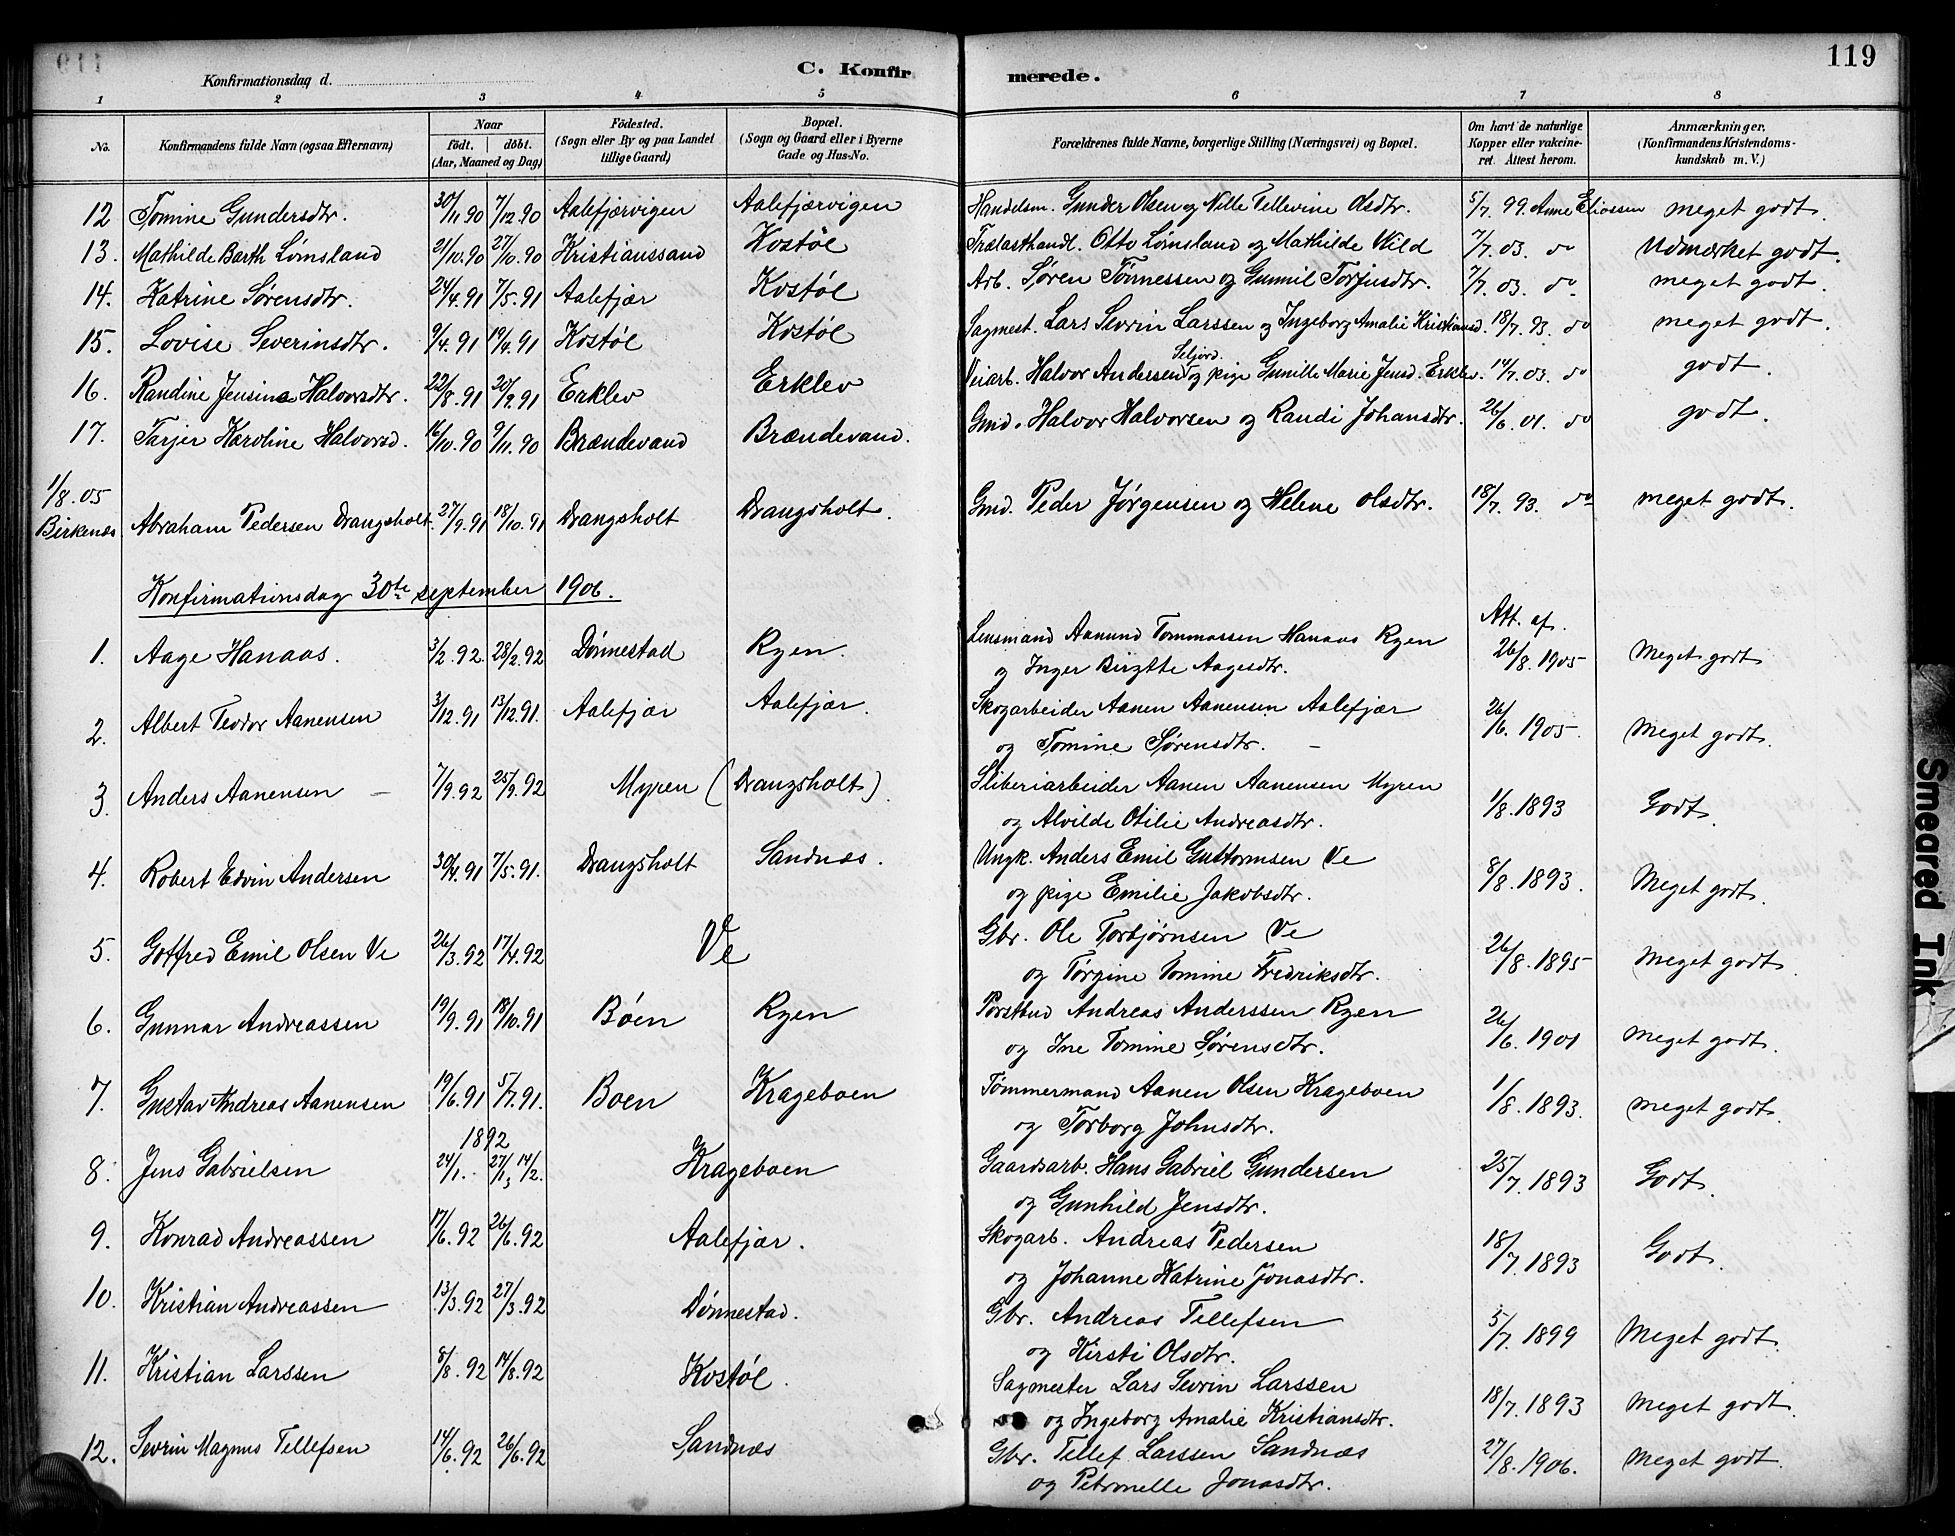 119
C. Konfirmerede.
Konfirmationsdag d.
1 2 3 4 5 6 7 8
No. Konfirmandens fulde Navn (ogsaa Efternavn) Naar födt. döbt. (Aar, Maaned og Dag) Födested. (Sogn eller By og paa Landet tillige Gaard) Bopæl. (Sogn og Gaard eller i Byerne Gade og Hus-No. Forældrenes fulde Navne, borgerlige Stilling (Næringsvei) og Bopæl. Om havt de naturlige Kopper eller vakcineret. Attest herom. Anmærkninger. (Konfirmandens Kristendomskundskab m. V.)
12 Tomine Gundersdtr. 30/11.90 7/12.90 Aalefjærvigen Aalefjærvigen Handelsm. Gunder Olsen og Nille Tellevine Olsdtr. 5/7.99. Anne Eliassen meget godt.
13. Mathilde Barth Lømsland 21/10.90 27/10.90 Kristianssand Kostøl Trælasthandl. Otto Lømsland og Mathilde Wild 7/7.03. do Udmærket godt.
14. Katrine Sørensdtr. 24/4.91 7/5.91 Aalefjær Kostøl Arb. Søren Tønnessen og Gunnil Torjusdtr. 7/7.03. do. meget godt.
15. Lovise Severinsdtr. 9/4.91 19/4.91 Kostøl Kostøl Sagmest. Lars Sevrin Larssen og Ingeborg Amalie Kristiansd. 18/7.93. do meget godt.
16. Randine Jensine Halvorsdtr. 22/8.91 20/9.91 Erklev Erklev Veiarb. Halvor Andersen Seljord. og pige Gunille Marie Jensd. Erklev. 14/7.03. do godt.
17. Tarjer Karoline Halvorsd. 16/10.90 9/11.90 Brændevand Brændevand. Gmd. Halvor Halvorsen og Randi Johansdtr. 26/6.01. do godt.
1/8.05
Birkenæs Abraham Pedersen Drangsholt. 27/9.91 18/10.91 Drangsholt Drangsholt. Gmd. Peder Jørgensen og Helene Olsdtr. 18/7.93. do meget godt.
Konfirmationsdag 30te september 1906.
Att. af.
1. Aage Hanaas. 3/2.92. 28/2.92 Dønnestad Ryen. Lensmand Aanund Tommassen Hanaas Ryen 26/8.1905 Meget godt
og Inger Birgitte Aagesdtr.
2. Albert Teodor Aanensen 3/12.91 13/12.91. Aalefjær Aalefjær. Skogarbeider Aanen Aanensen Aalefjær 26/6.1905. Meget godt.
og Tomine Sørensdtr. —
3. Anders Aanensen — 7/9.92 25/9.92 Myren (Drangsholt). Sliberiarbeider Aanen Aanensen Myren 1/8.1893 Godt.
og Alvilde Otilie Andreasdtr.
4. Robert Edvin Andersen 30/4.91 7/5.91. Drangsholt Sandnæs. Ungk. Anders Emil Guttormsen Ve 8/8.1893. Meget godt.
og pige Emilie Jakobsdtr.
5. Gotfred Emil Olsen Ve 26/3.92 17/4.92 Ve Gbr. Ole Torbjørnsen Ve 26/8.1895 Meget godt.
og Tørgine Tomine Fredriksdtr.
6. Gunnar Andreassen 19/9.91 18/10.91 Bóen Ryen Postbud Andreas Anderssen Ryen 26/6.1901 Meget godt.
og Ine Tomine Sørensdtr.
7. Gustav Andreas Aanensen 19/6.91 5/7.91. Boen Krageboen Tømmermand Aanen Olsen Krageboen 1/8.1893. meget godt.
og Torborg Johnsdtr.
1892
8. Jens Gabrielsen 24/1. 27/1, 14/2. Krageboen Gaardsarb. Hans Gabriel Gundersen 25/7.1893 Godt.
og Gunhild Jensdtr.
9. Konrad Andreassen 17/6.92 26/6.92 Aalefjær. Skogarb. Andreas Pedersen 18/7.1893 Godt.
og Johanne Katrine Jonasdtr.
10. Kristian Andreassen 13/3.92 27/3.92 Dønnestad. Gbr. Andreas Tellefsen 5/7.1899 Meget godt.
og Kirsti Olsdtr.
11. Kristian Larssen 8/8.92 14/8.92 Kostøl. Sagmester Lars Sevrin Larssen 18/7.1893 Meget godt.
og Ingeborg Amalie Kristiansdtr.
12. Sevrin Magnus Tellefsen 14/6.92 26/6.92 Sandnæs Gbr. Tellef Larssen Sandnæs 27/8.1906. Meget godt.
og Petronelle Jonasdtr.
Smeared Ink